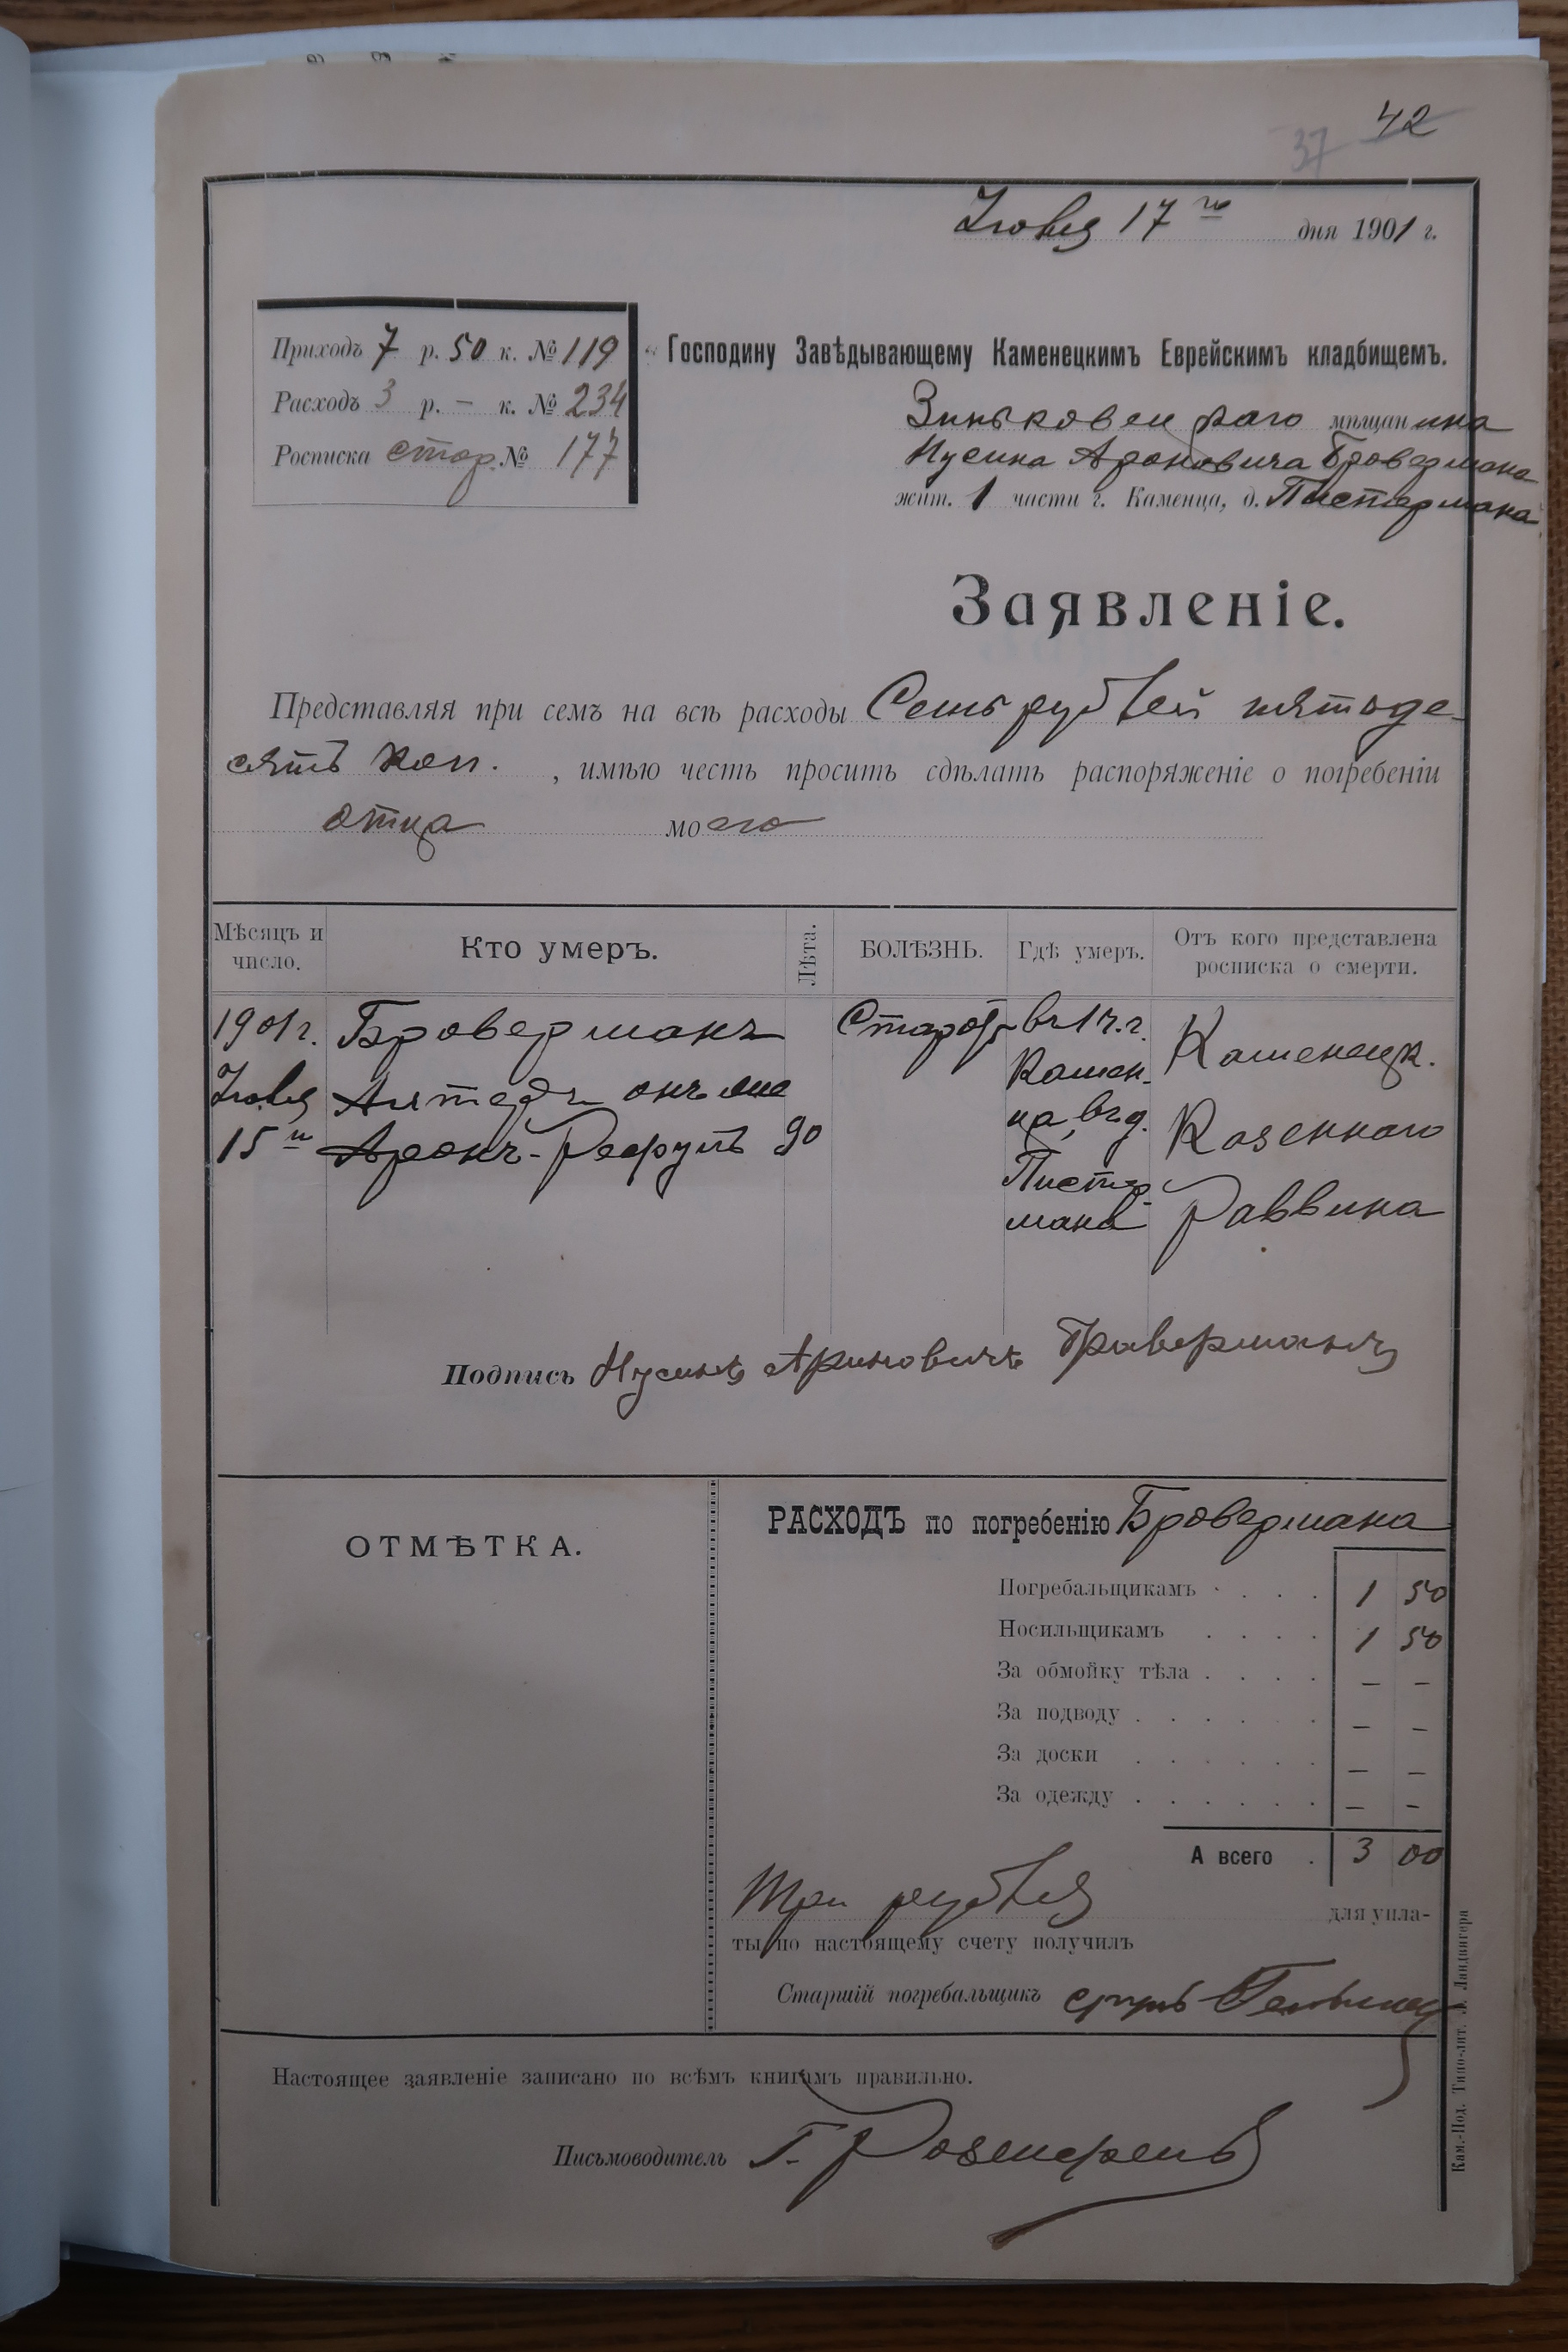 42
37
Іюля 17 го дня 1901 г.
Приходъ 7 р. 50 к. № 119
Расходъ 3 р. – к. № 234
Росписка стор. № 177
Господину Завѣдывающему Каменецкимъ Еврейскимъ кладбищемъ.
Зиньковецкаго мѣщанина
Нусина Ароновича Бровермана
жит. 1 части г. Каменца, д. Пистермана
Заявленіе.
Представляя при семъ на всѣ расходы Семь рублей пятьде-
сятъ коп. , имѣю честь просить сдѣлать распоряженіе о погребеніи
отца моего
Мѣсяцъ и число.
Кто умеръ.
Лѣта.
БОЛѢЗНЬ.
Гдѣ умеръ.
Отъ кого представлена росписка о смерти.
1901 г. Іюля 15 го
Броверманъ
Алтеръ онъ же
Аронъ-Рефулъ
90
Старость
въ 1 ч. г.
Камен-
ца, въ д.
Пистер-
мана
Каменецк.
Казеннаго
Раввина
Подпись Нусинъ Ариновичъ Браверманъ
ОТМѢТКА.
РАСХОДЪ по погребенію Бровермана
Погребальщикамъ . . . . 1 50
Носильщикамъ . . . . 1 50
За обмойку тѣла . . . . – –
За подводу . . . . . . – –
За доски . . . . . . – –
За одежду . . . . . . – –
А всего . 3 00
Три рубля для упла-
ты по настоящему счету получилъ
Старшій погребальщикъ
Настоящее заявленіе записано по всѣмъ книгамъ правильно.
Письмоводитель Г. Розенфельд
Кам.-Под. Типо-лит. Л. Ландвигера